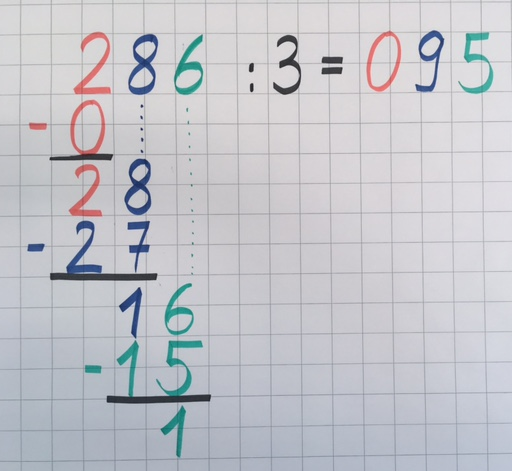 286 : 3 = 095
- 0
28
- 27
16
- 15
1